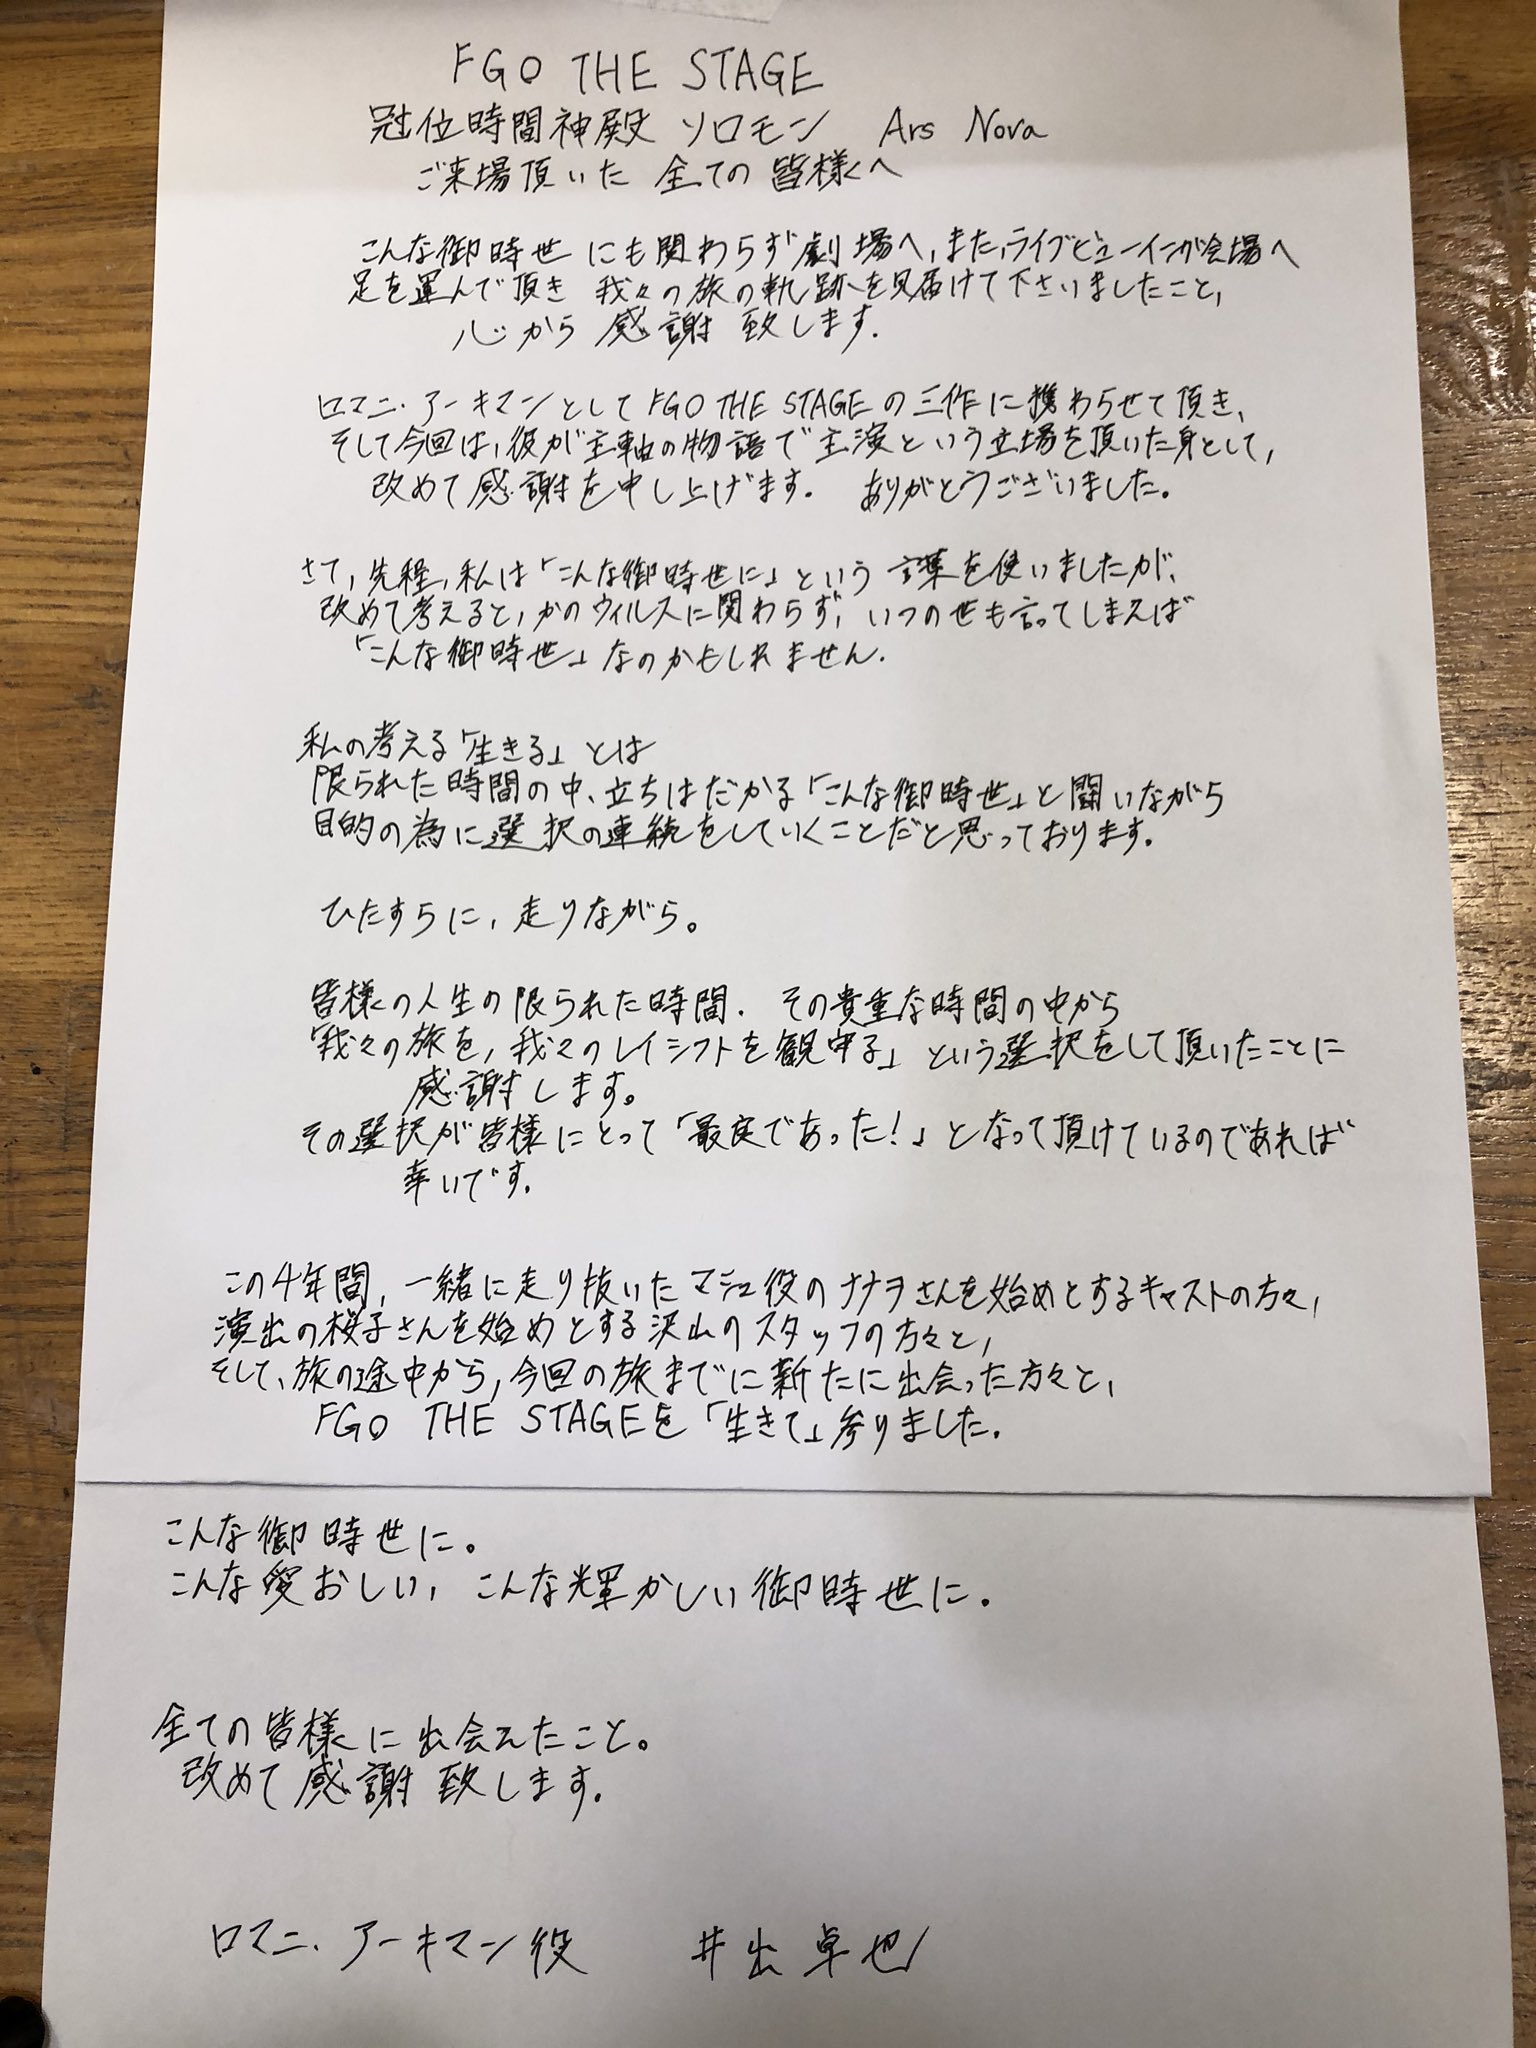 FGO THE STAGE
冠位時間神殿 ソロモン Ars Nova
ご来場頂いた 全ての 皆様へ
こんな御時世 にも関わらず劇場へ、また、ライブビューイング会場へ
足を運んで頂き 我々の旅の軌跡を見届けて下さいましたこと、
心から 感謝 致します.
ロマニ・アーキマンとしてFGO THE STAGEの三作に携わらせて頂き、
そして今回は、彼が主軸の物語で主演という立場を頂いた身として、
改めて感謝を申し上げます. ありがとうございました。
さて、先程、私は「こんな御時世に」という 言葉を使いましたが、
改めて考えると、かのウィルスに関わらず、いつの世も言ってしまえば
「こんな御時世」なのかもしれません.
私の考える「生きる」とは
限られた時間の中、立ちはだかる「こんな御時世」と闘いながら
目的の為に選択の連続をしていくことだと思っております.
ひたすらに、走りながら。
皆様の人生の限られた時間. その貴重な時間の中から
「我々の旅を、我々のレイシフトを観守る」という選択をして頂いたことに
感謝します。
その選択が皆様にとって「最良であった!」となって頂けているのであれば
幸いです.
この4年間、一緒に走り抜いたマシュ役のナナヲさんを始めとするキャストの方々、
演出の桜子さんを始めとする沢山のスタッフの方々と、
そして、旅の途中から、今回の旅までに新たに出会った方々と、
FGO THE STAGEを「生きて」参りました.
こんな御時世に。
こんな愛おしい、こんな輝かしい御時世に.
全ての皆様に出会えたこと。
改めて感謝致します.
ロマニ・アーキマン役 井出卓也